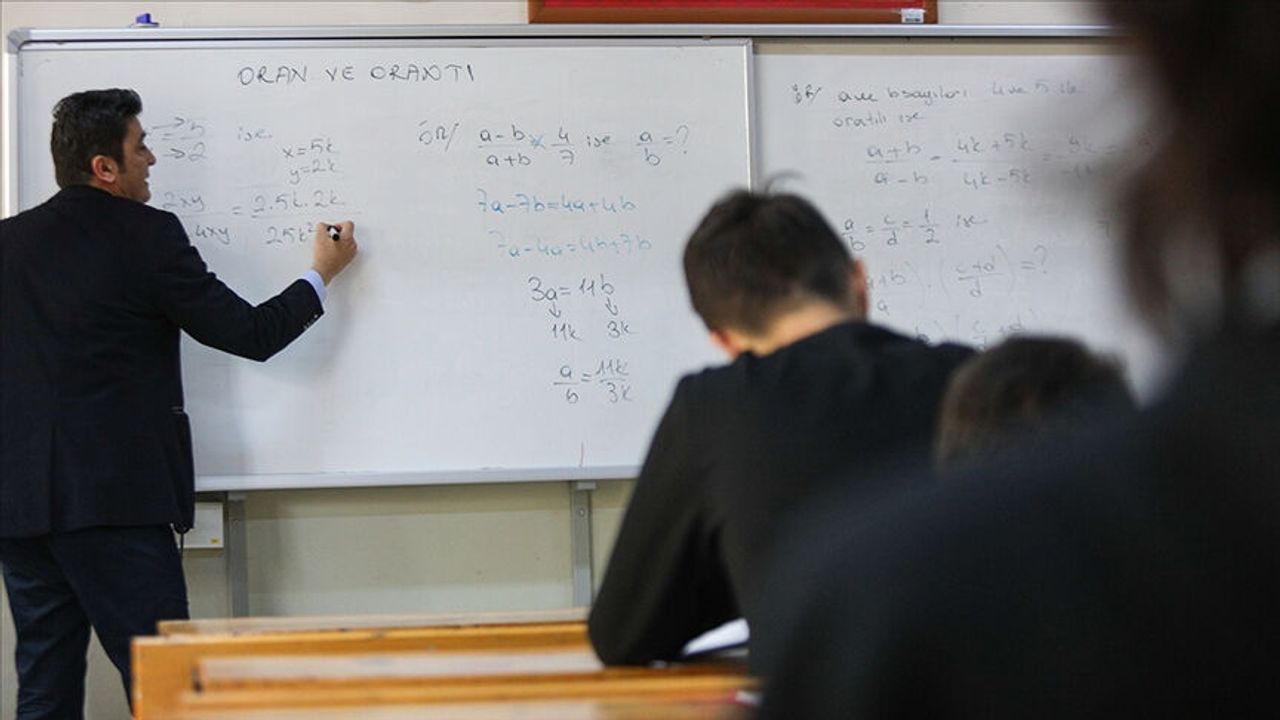 ORAN VE ORANTI
ise
x=5k
y=2k
2xy = 2.5k.2k
4xy 25k²
ÖR/ a-b / a+b × 4/7 ise a/b =?
7a-7b=4a+4b
7a-4a=4b+7b
3a=11b
11k 3k
a/b = 11k/3k
ÖR/ a ve b sayıları 4 ve 5 ile
oratılı ise
a+b / a-b = 4k+5k / 4k-5k =
a/b = c/d = 1/2 ise
a+b / a . (c+d / d) =?